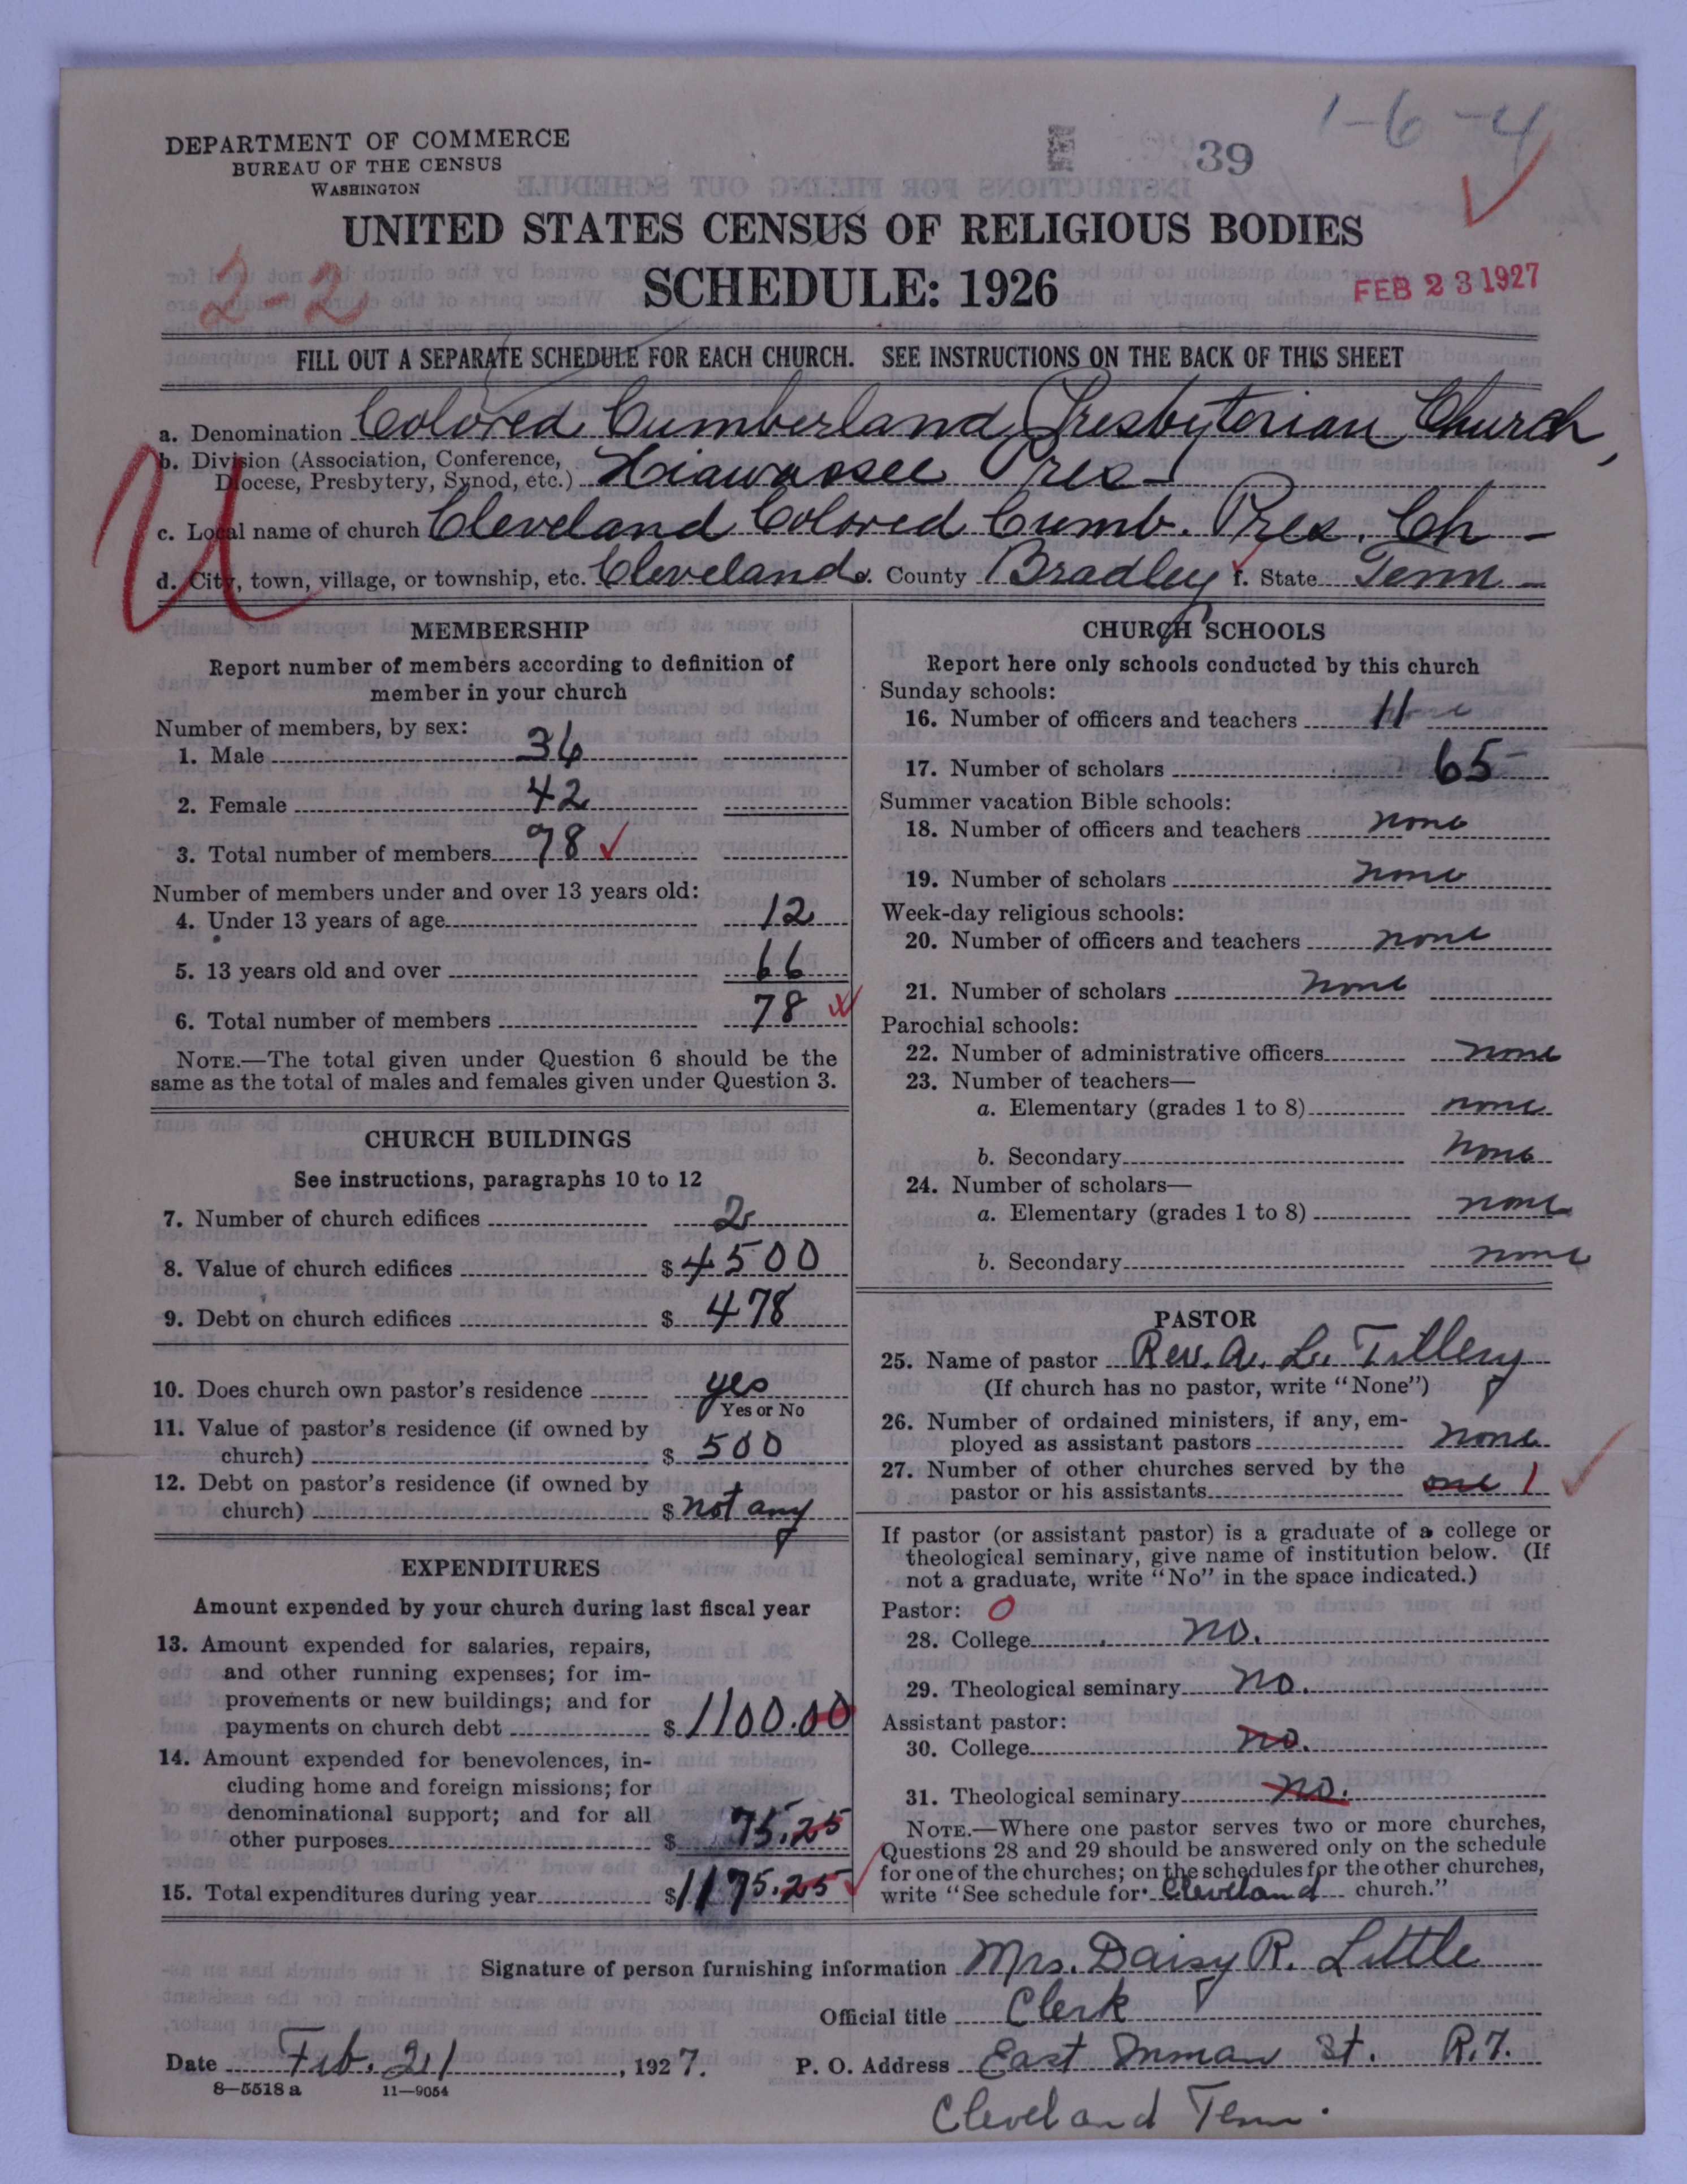 1-6-4
39
DEPARTMENT OF COMMERCE
BUREAU OF THE CENSUS
WASHINGTON
UNITED STATES CENSUS OF RELIGIOUS BODIES
SCHEDULE: 1926
2-2
FEB 23 1927
FILL OUT A SEPARATE SCHEDULE FOR EACH CHURCH. SEE INSTRUCTIONS ON THE BACK OF THIS SHEET
a. Denomination Colored Cumberland Presbyterian Church,
b. Division (Association, Conference,
Diocese, Presbytery, Synod, etc.) Hiawassee Pres
U
c. Local name of church Cleveland Colored Cumb. Pres. Ch
d. City, town, village, or township, etc. Cleveland e. County Bradley f. State Tenn
MEMBERSHIP
Report number of members according to definition of
member in your church
Number of members, by sex:
1. Male 36
2. Female 42
3. Total number of members 78
Number of members under and over 13 years old:
4. Under 13 years of age 12
5. 13 years old and over 66
6. Total number of members 78
NOTE.—The total given under Question 6 should be the
same as the total of males and females given under Question 3.
CHURCH BUILDINGS
See instructions, paragraphs 10 to 12
7. Number of church edifices 2
8. Value of church edifices $4500
9. Debt on church edifices $478
10. Does church own pastor's residence yes
Yes or No
11. Value of pastor's residence (if owned by
church) $500
12. Debt on pastor's residence (if owned by
church) $not any
EXPENDITURES
Amount expended by your church during last fiscal year
13. Amount expended for salaries, repairs,
and other running expenses; for im-
provements or new buildings; and for
payments on church debt $1100.00
14. Amount expended for benevolences, in-
cluding home and foreign missions; for
denominational support; and for all
other purposes $75.25
15. Total expenditures during year $1175.25
CHURCH SCHOOLS
Report here only schools conducted by this church
Sunday schools:
16. Number of officers and teachers 11
17. Number of scholars 65
Summer vacation Bible schools:
18. Number of officers and teachers none
19. Number of scholars none
Week-day religious schools:
20. Number of officers and teachers none
21. Number of scholars none
Parochial schools:
22. Number of administrative officers none
23. Number of teachers—
a. Elementary (grades 1 to 8) none
b. Secondary none
24. Number of scholars—
a. Elementary (grades 1 to 8) none
b. Secondary none
PASTOR
25. Name of pastor Rev. A. L. Tillery
(If church has no pastor, write "None")
26. Number of ordained ministers, if any, em-
ployed as assistant pastors none
27. Number of other churches served by the
pastor or his assistants one 1
If pastor (or assistant pastor) is a graduate of a college or
theological seminary, give name of institution below. (If
not a graduate, write "No" in the space indicated.)
Pastor: 0
28. College no.
29. Theological seminary no.
Assistant pastor:
30. College no.
31. Theological seminary no.
NOTE.—Where one pastor serves two or more churches,
Questions 28 and 29 should be answered only on the schedule
for one of the churches; on the schedules for the other churches,
write "See schedule for Cleveland church."
Signature of person furnishing information Mrs. Daisy R. Little
Official title Clerk
Date Feb. 21, 1927. P. O. Address East Inman St. R.7.
8-5518 a 11-9054
Cleveland Tenn.